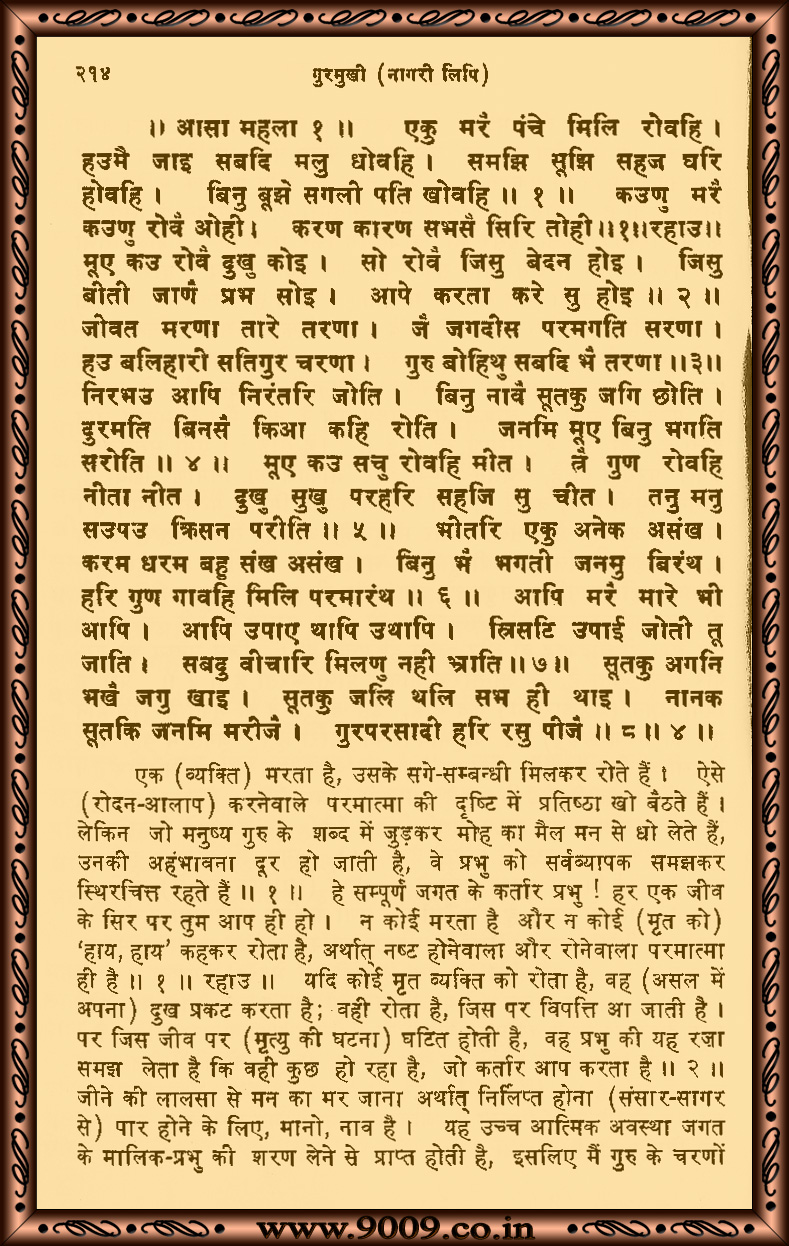 २१४ गुरमुखी (नागरी लिपि)
॥ आसा महला १ ॥ एकु मरै पंचे मिलि रोवहि ।
हउमै जाइ सबदि मलु धोवहि । समझि सूझि सहज घरि
होवहि । बिनु बूझे सगली पति खोवहि ॥ १ ॥ कउणु मरै
कउणु रोवै ओही । करण कारण सभसै सिरि तोही ॥१॥रहाउ॥
मूए कउ रोवै दुखु कोइ । सो रोवै जिसु बेदन होइ । जिसु
बीती जाणै प्रभ सोइ । आपे करता करे सु होइ ॥ २ ॥
जीवत मरणा तारे तरणा । जै जगदीस परमगति सरणा ।
हउ बलिहारी सतिगुर चरणा । गुरु बोहिथु सबदि भै तरणा ॥३॥
निरभउ आपि निरंतरि जोति । बिनु नावै सूतकु जगि छोति ।
दुरमति बिनसै किआ कहि रोति । जनमि मूए बिनु भगति
सरोति ॥ ४ ॥ मूए कउ सचु रोवहि मीत । त्रै गुण रोवहि
नीता नीत । दुखु सुखु परहरि सहजि सु चीत । तनु मनु
सउपउ क्रिसन परीति ॥ ५ ॥ भीतरि एकु अनेक असंख ।
करम धरम बहु संख असंख । बिनु भै भगती जनमु बिरंथ ।
हरि गुण गावहि मिलि परमारंथ ॥ ६ ॥ आपि मरै मारे भी
आपि । आपि उपाए थापि उथापि । स्रिसटि उपाई जोती तू
जाति । सबदु वीचारि मिलणु नही भ्राति ॥ ७ ॥ सूतकु अगनि
भखै जगु खाइ । सूतकु जलि थलि सभ ही थाइ । नानक
सूतकि जनमि मरीजै । गुरपरसादी हरि रसु पीजै ॥ ८ ॥ ४ ॥
एक (व्यक्ति) मरता है, उसके सगे-सम्बन्धी मिलकर रोते हैं । ऐसे
(रोदन-आलाप) करनेवाले परमात्मा की दृष्टि में प्रतिष्ठा खो बैठते हैं ।
लेकिन जो मनुष्य गुरु के शब्द में जुड़कर मोह का मैल मन से धो लेते हैं,
उनकी अहंभावना दूर हो जाती है, वे प्रभु को सर्वव्यापक समझकर
स्थिरचित्त रहते हैं ॥ १ ॥ हे सम्पूर्ण जगत के कर्तार प्रभु ! हर एक जीव
के सिर पर तुम आप ही हो । न कोई मरता है और न कोई (मृत को)
‘हाय, हाय’ कहकर रोता है, अर्थात् नष्ट होनेवाला और रोनेवाला परमात्मा
ही है ॥ १ ॥ रहाउ ॥ यदि कोई मृत व्यक्ति को रोता है, वह (असल में
अपना) दुख प्रकट करता है; वही रोता है, जिस पर विपत्ति आ जाती है ।
पर जिस जीव पर (मृत्यु की घटना) घटित होती है, वह प्रभु की यह रज़ा
समझ लेता है कि वही कुछ हो रहा है, जो कर्तार आप करता है ॥ २ ॥
जीने की लालसा से मन का मर जाना अर्थात् निर्लिप्त होना (संसार-सागर
से) पार होने के लिए, मानो, नाव है । यह उच्च आत्मिक अवस्था जगत
के मालिक-प्रभु की शरण लेने से प्राप्त होती है, इसलिए मैं गुरु के चरणों
www.9009.co.in